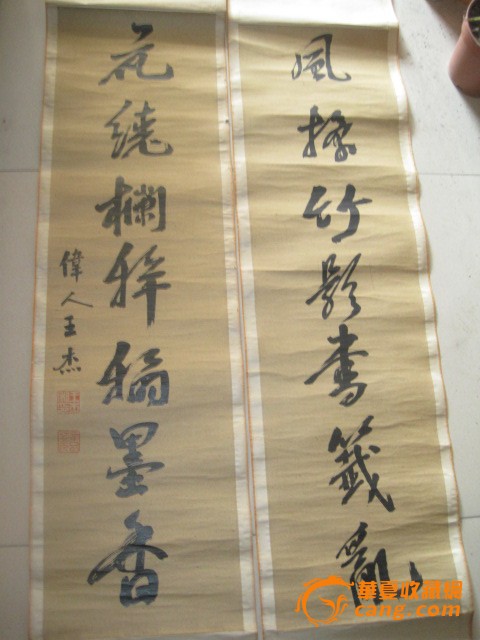 風搖竹影書籤亂
花繞欄幹翰墨香
偉人王杰
華夏收藏網
cang.com